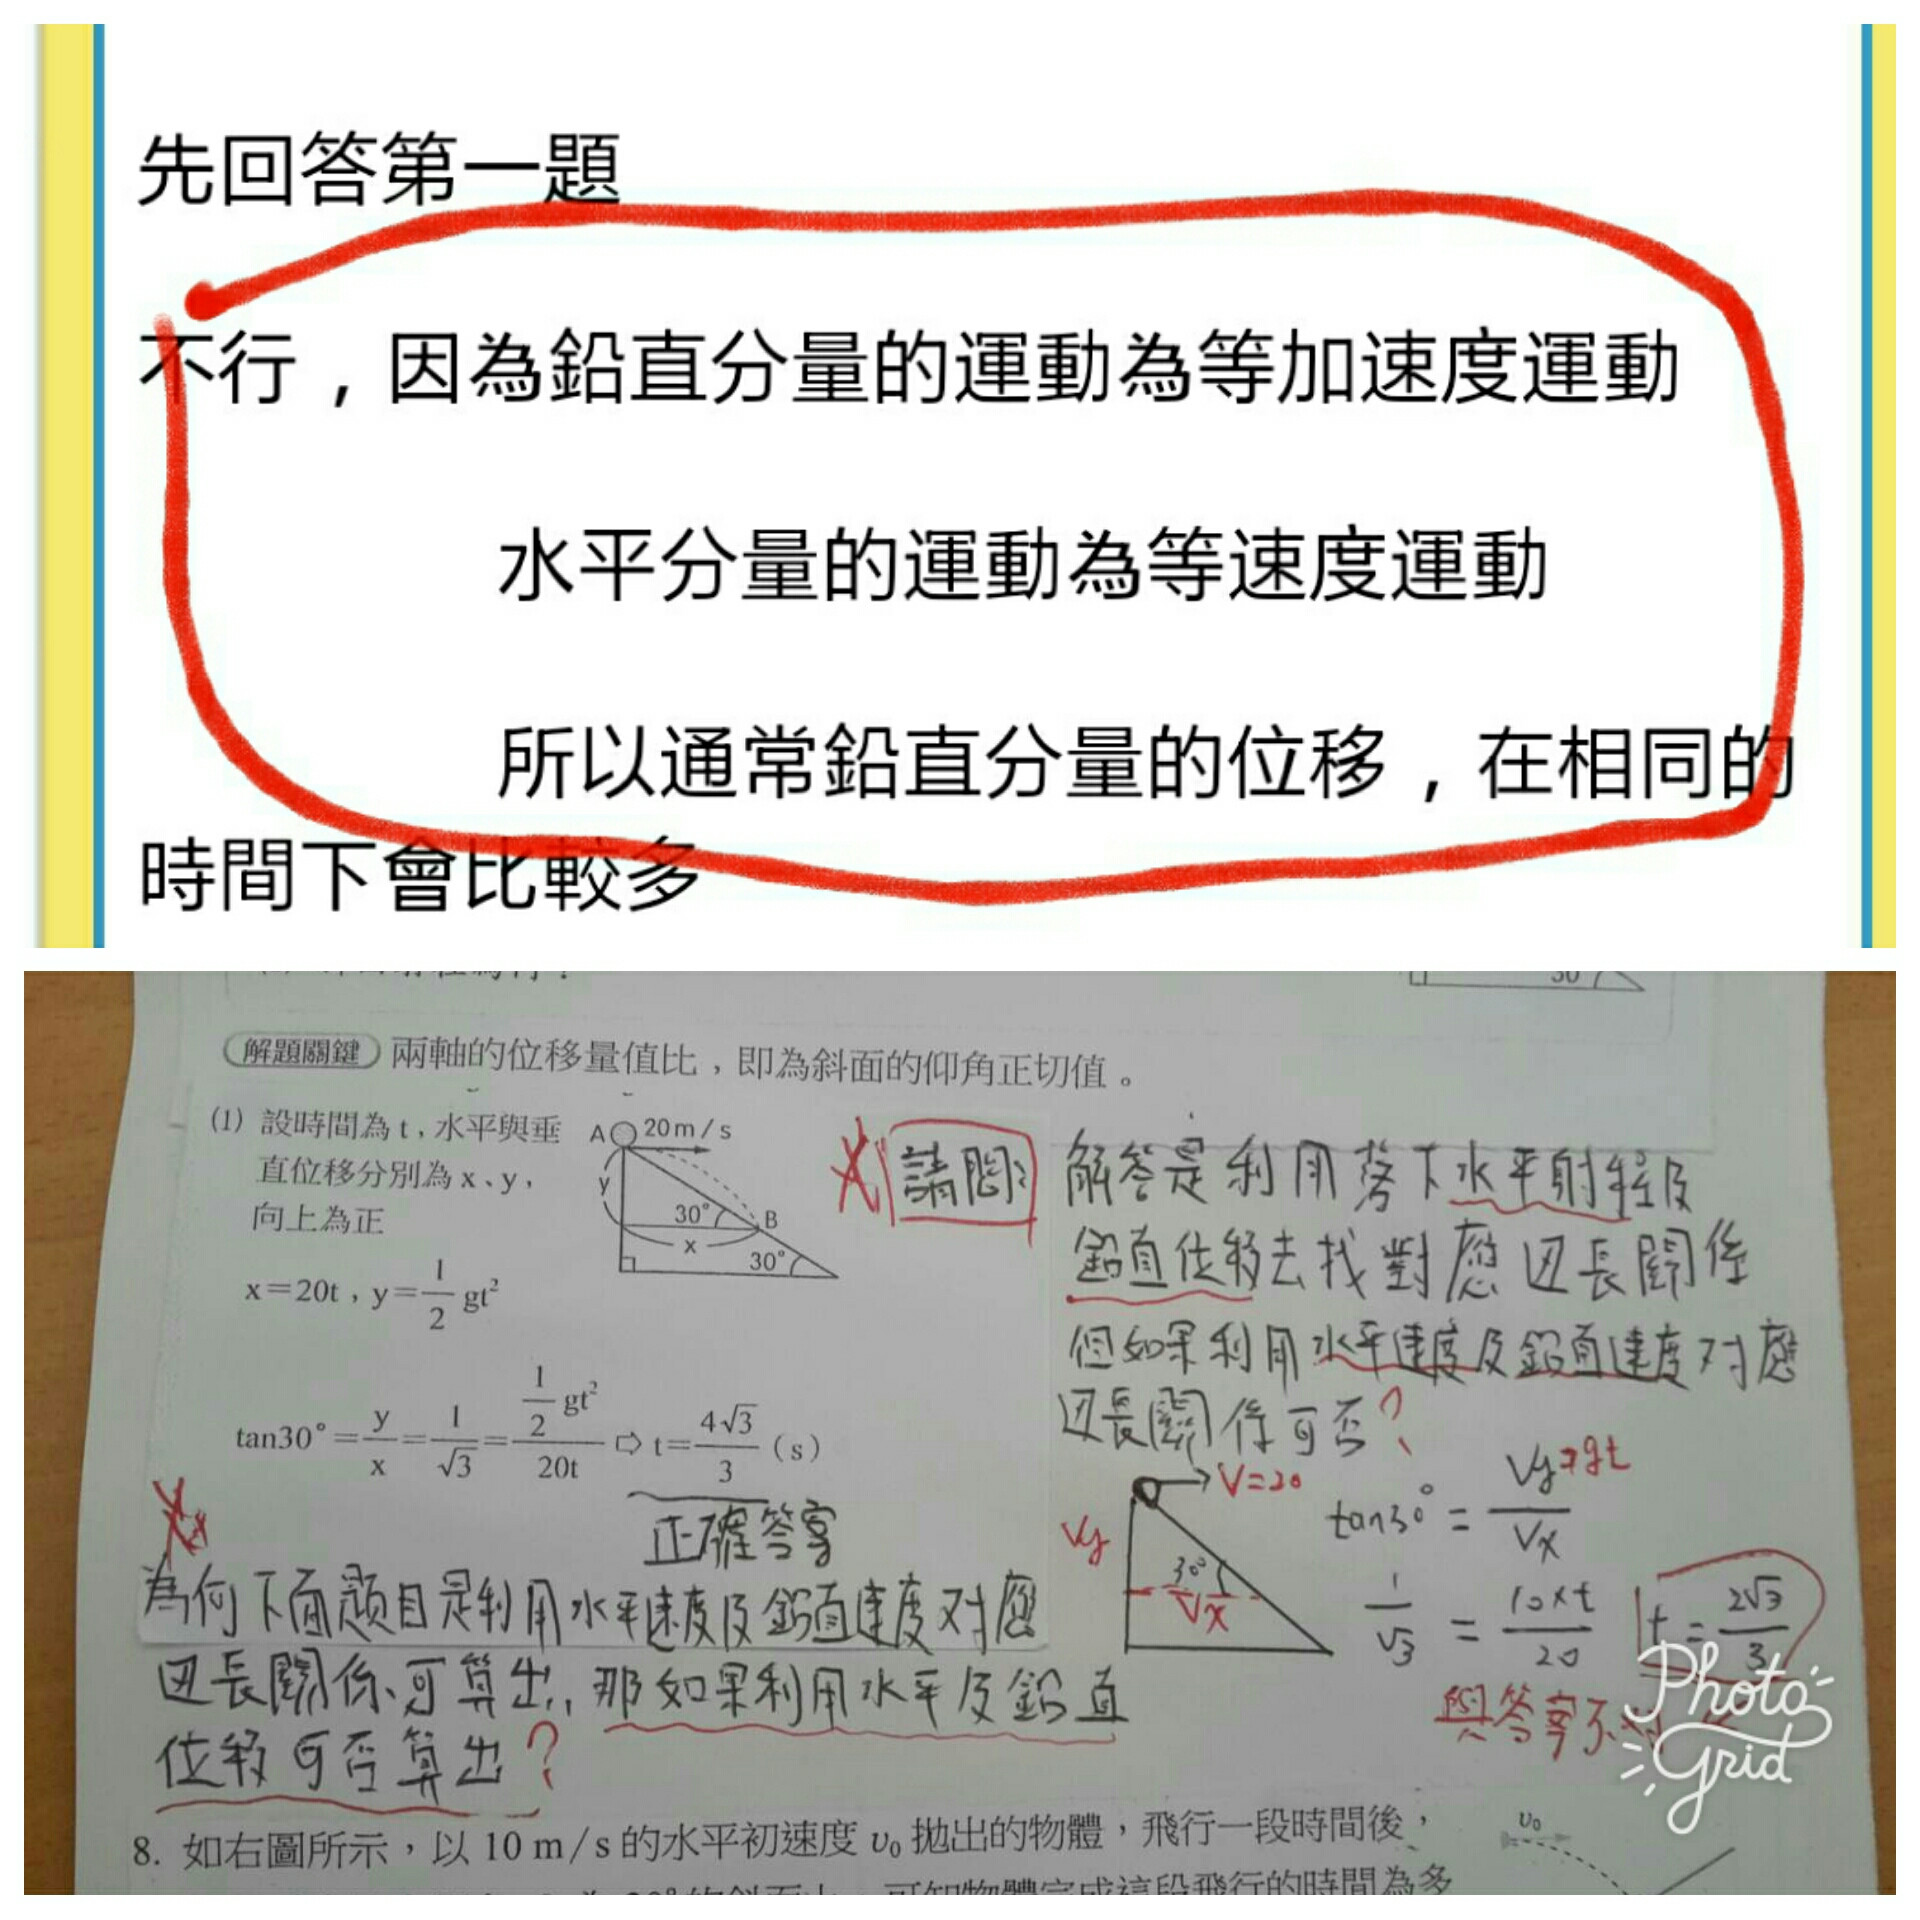 先回答第一題
不行，因為鉛直分量的運動為等加速度運動
水平分量的運動為等速度運動
所以通常鉛直分量的位移，在相同的
時間下會比較多
30°
解題關鍵 兩軸的位移量值比，即為斜面的仰角正切值。
(1) 設時間為 t，水平與垂
直位移分別為 x、y，
向上為正
x=20t，y=1/2 gt²
A 20 m/s
y
30° B
x
30°
tan30°=y/x=1/√3=(1/2 gt²)/20t ⇨ t=4√3/3 (s)
正確答案
請問：
解答是利用落下水平射程及
鉛直位移去找對應边長關係
但如果利用水平速度及鉛直速度对應
边長關係可否？
V=20
Vy
30°
Vx
tan30°=Vy/Vx
⇒gt
1/√3 = 10×t/20
t=2√3/3
與答案不
為何下面題目是利用水平速度及鉛直速度对應
边長關係可算出，那如果利用水平及鉛直
位移可否算出？
Photo
Grid
8. 如右圖所示，以 10 m/s 的水平初速度 v₀ 拋出的物體，飛行一段時間後，
v₀
的斜面上，可知物體完成這段飛行的時間為多